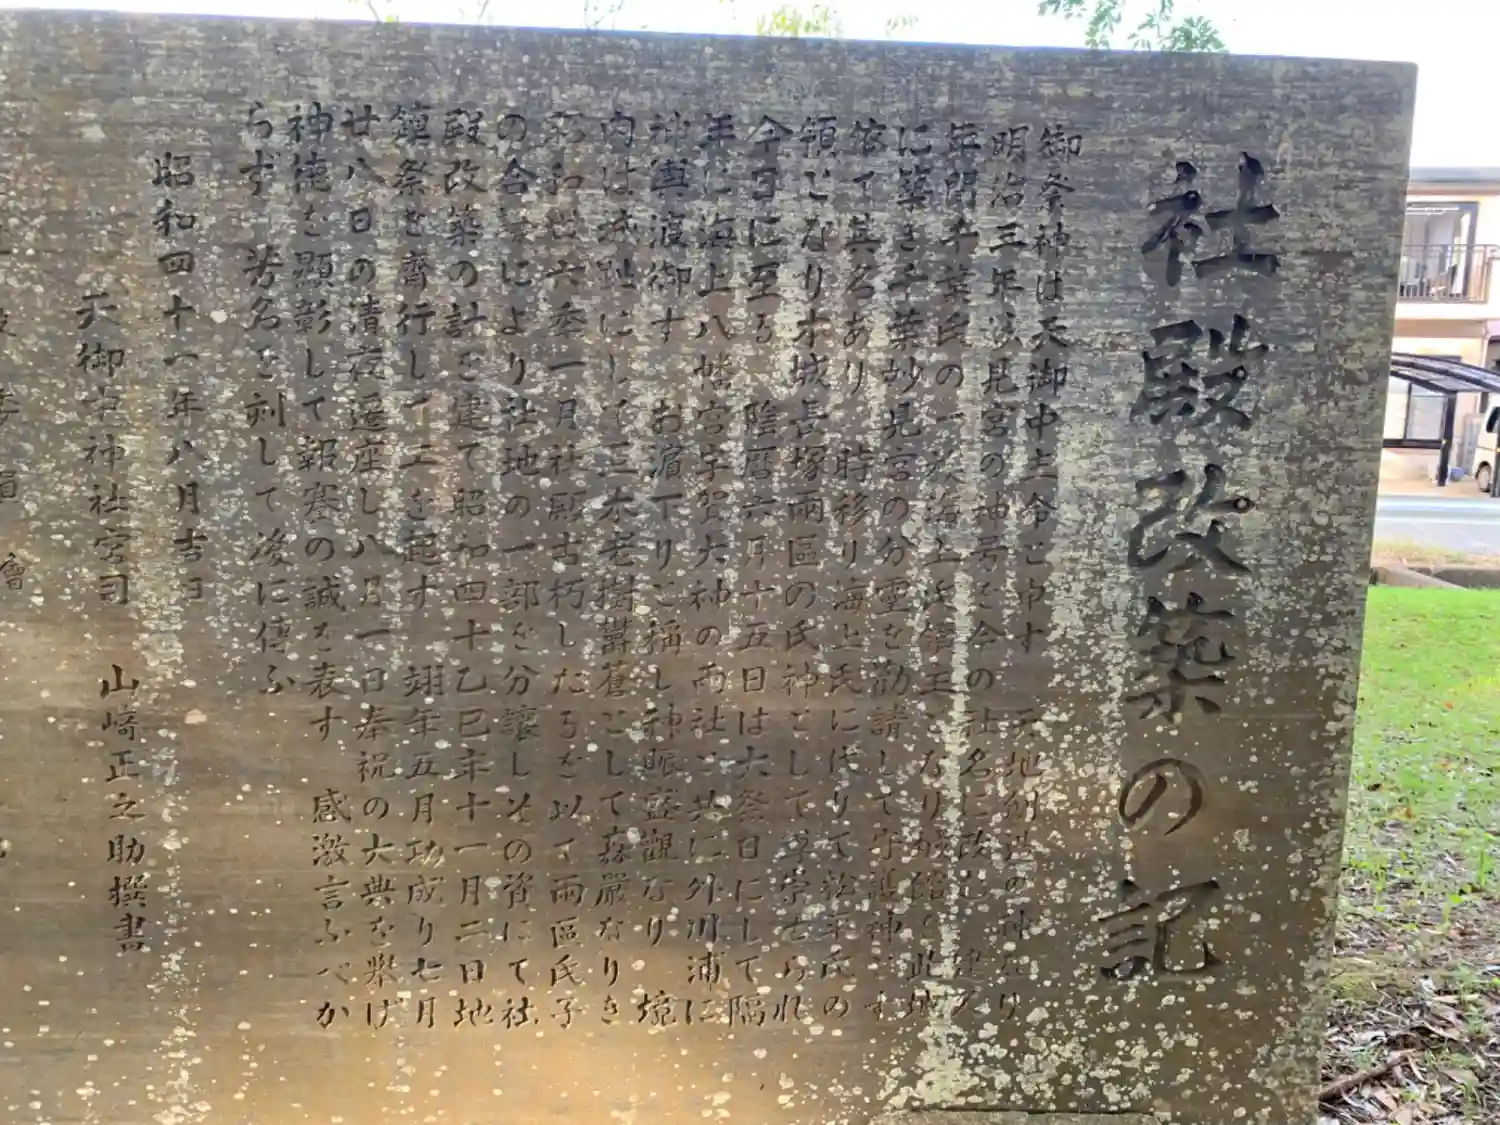 社殿改築の記
御祭神は天御中主命と申す 天地創造の神なり
明治三年妙見宮の神号を今の社名に改む 建久
年間千葉氏の一族海上氏領主となり城館を此地
に築き千葉妙見宮の分霊を勧請して守護神とす
依て其名あり 時移り海上氏に代りて松平氏の
領となりすが城長塚両區の氏神として尊崇せられ
今日に至る 陰暦六月十五日は大祭日にして隔
年に海上八幡宮宇賀大神の両社と共に外川浦に
神輿渡御す お濱下りと稱し神賑盛觀なり 境
内は城趾にして巨木老樹欝蒼として森嚴なりき
昭和 六年一月社殿古朽したるを以て両區氏子
の合議により社地の一部を分譲しその資にて社
殿改築の計を建て昭和四十乙巳年十一月二日地
鎮祭を齊行して工を起す 翊年五月功成り七月
廿八日の清夜遷座し八月一日奉祝の大典を擧げ
神徳を顯彰して報塞の誠を表す 感激言ふべか
らず 芳名を刻して後に傳ふ
昭和四十一年八月吉日
天御中神社宮司 山﨑正之助撰書